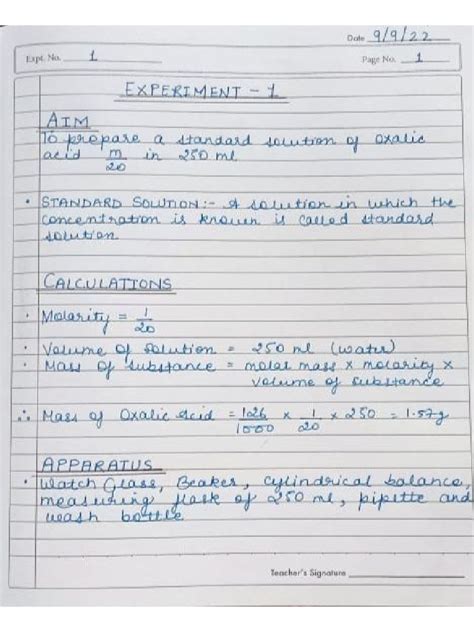 Date 9/9/22
Expt. No. 1 Page No. 1
EXPERIMENT - 1
AIM
To prepare a standard solution of oxalic
acid m/20 in 250 ml
• STANDARD SOLUTION:- A solution in which the
concentration is known is called standard
solution
CALCULATIONS
• Molarity = 1/20
• Volume of solution = 250 ml (water)
• Mass of substance = molar mass x molarity x
volume of substance
∴ Mass of Oxalic Acid = 126/1000 x 1/20 x 250 = 1.57g
APPARATUS
• Watch Glass, Beaker, cylindrical balance,
measuring flask of 250 ml, pipette and
wash bottle
Teacher's Signature